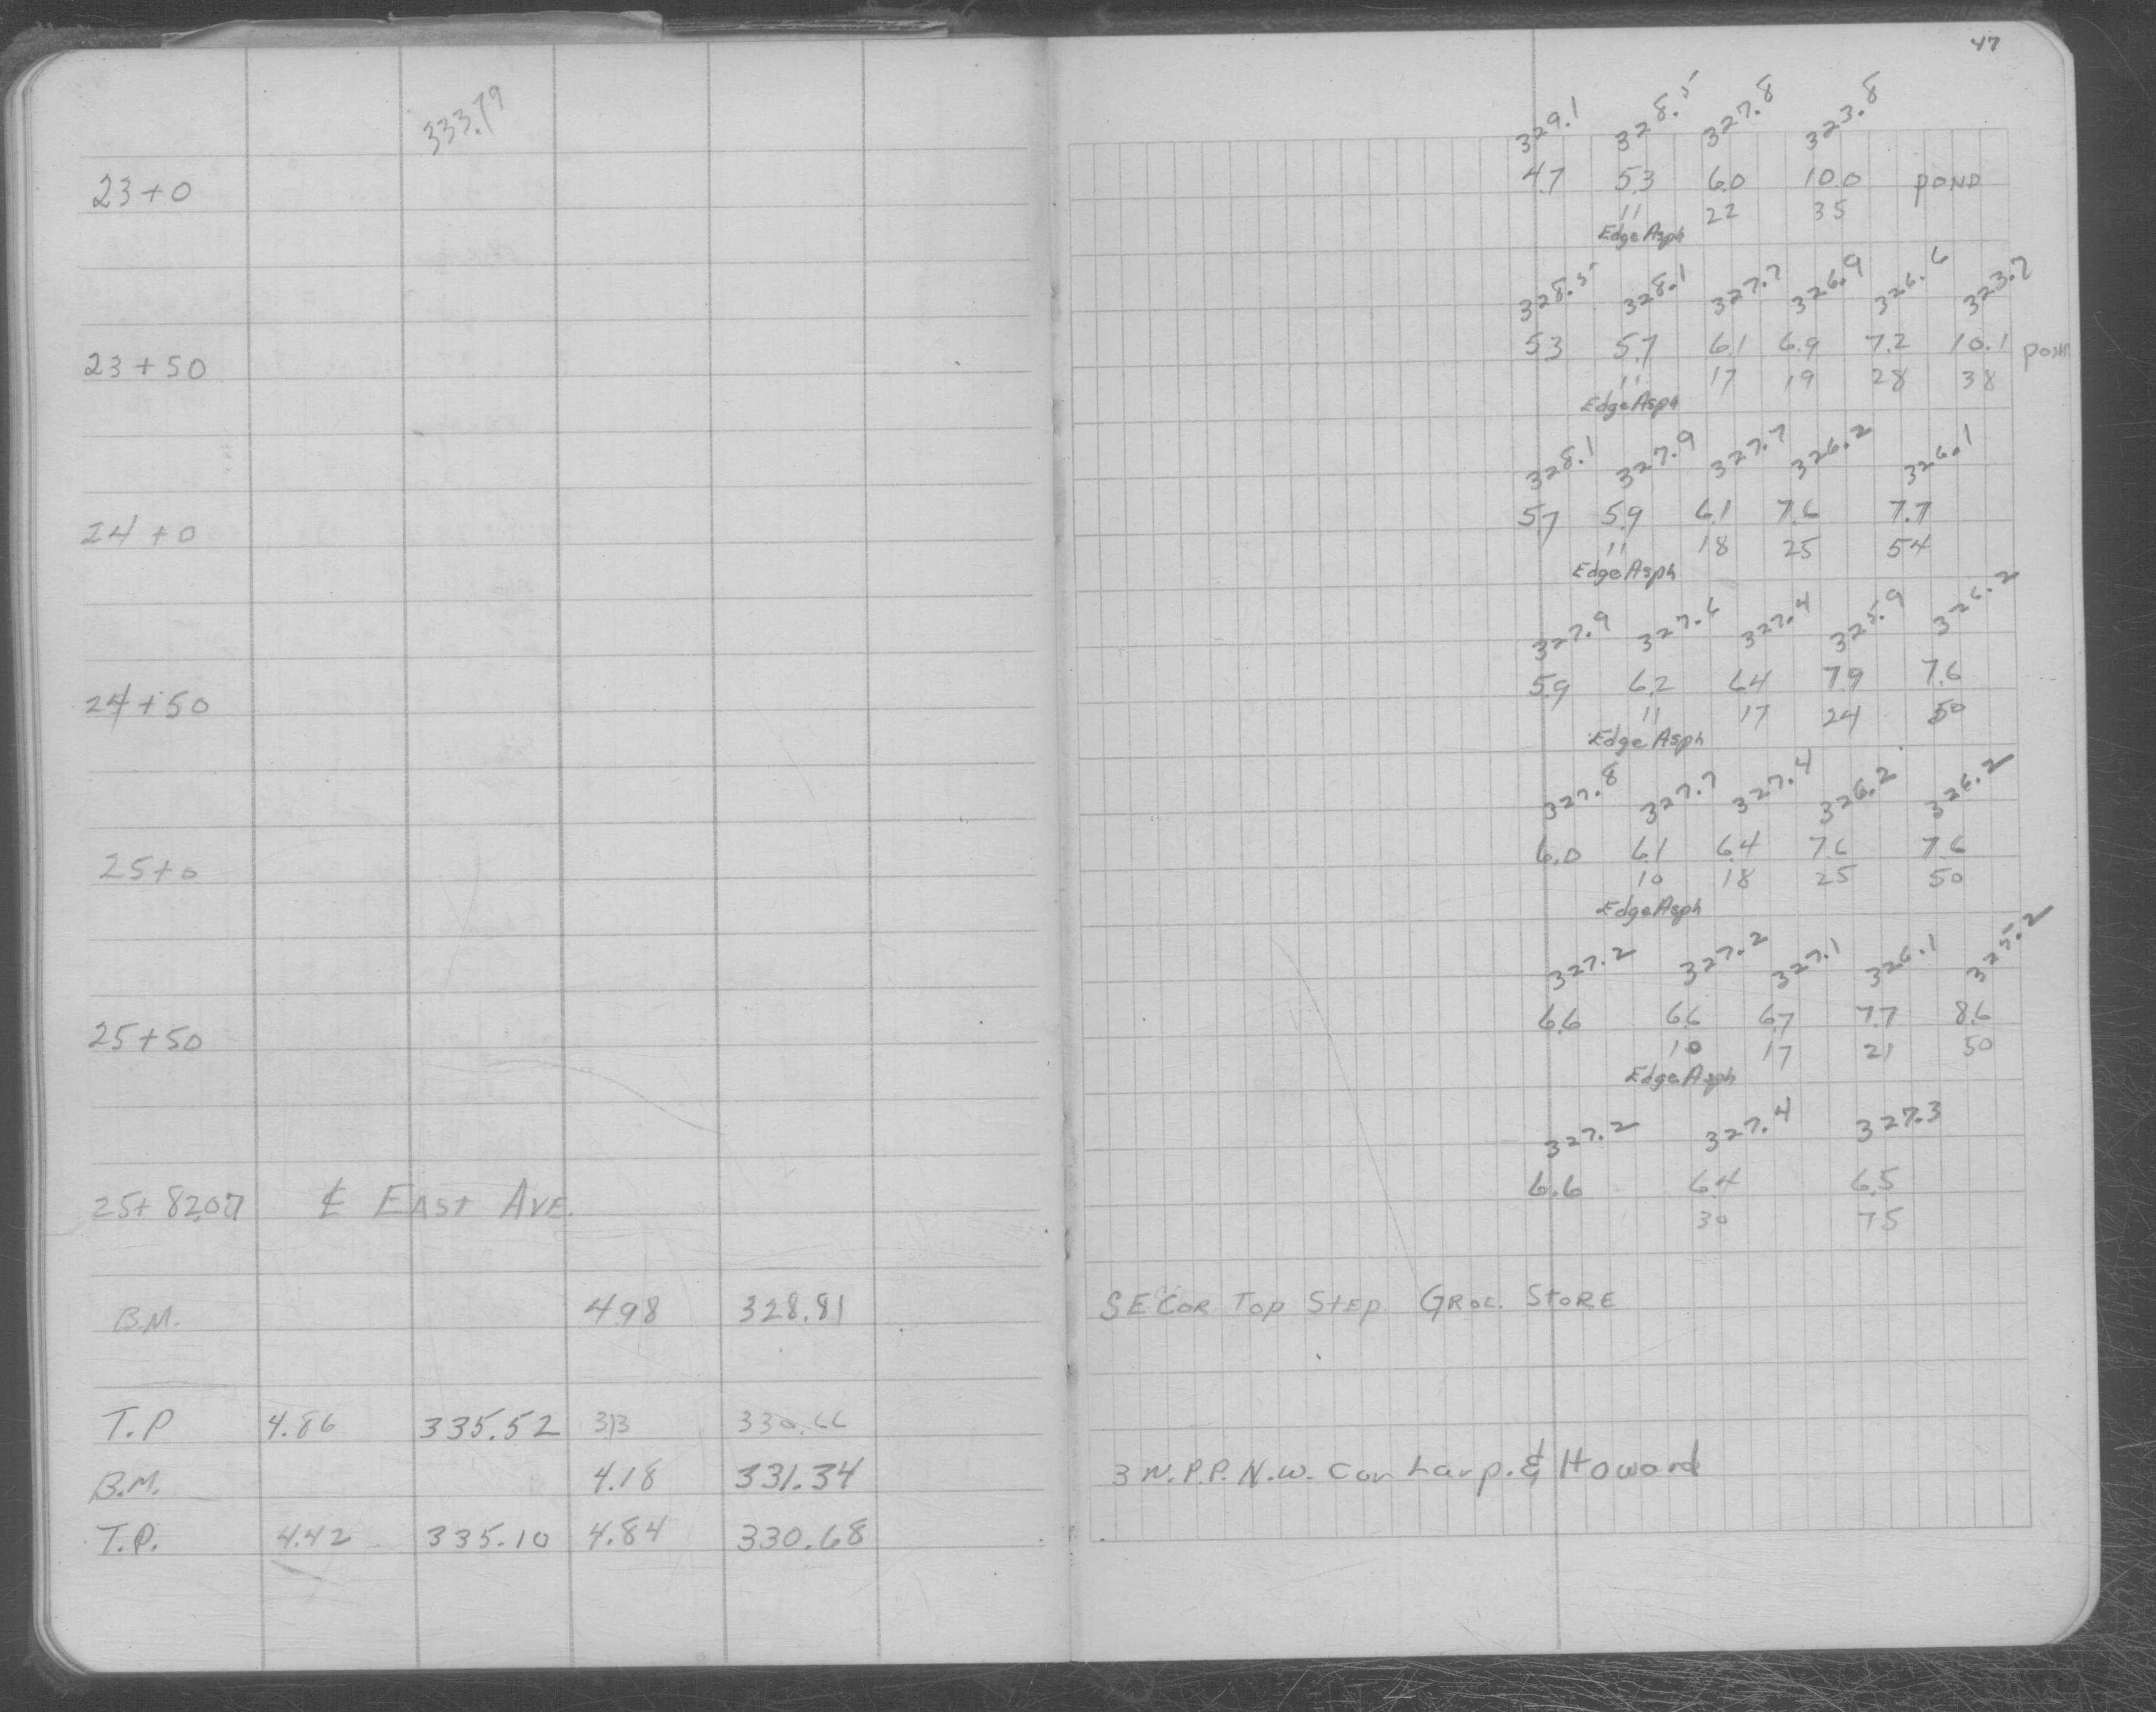 47
333.79
329.1 328.5 327.8 323.8
23+0 4.7 5.3 6.0 10.0 POND
11 22 35
Edge Asph
328.5 328.1 327.7 326.9 326.6 323.7
23+50 5.3 5.7 6.1 6.9 7.2 10.1 POND
11 17 19 28 38
Edge Asph
328.1 327.9 327.7 326.2 326.1
24+0 5.7 5.9 6.1 7.6 7.7
11 18 25 54
Edge Asph
327.9 327.6 327.4 325.9 326.2
24+50 5.9 6.2 6.4 7.9 7.6
11 17 24 50
Edge Asph
327.8 327.7 327.4 326.2 326.2
25+0 6.0 6.1 6.4 7.6 7.6
10 18 25 50
Edge Asph
327.2 327.2 327.1 326.1 325.2
25+50 6.6 6.6 6.7 7.7 8.6
10 17 21 50
Edge Asph
327.2 327.4 327.3
25+82.07 ℄ EAST AVE. 6.6 6.4 6.5
30 75
B.M. 4.98 328.81 SE COR TOP STEP GROC. STORE
T.P 4.86 335.52 3.13 330.66
B.M. 4.18 331.34 3 N.P.P. N.W. Cor Larp. & Howard
T.P. 4.42 335.10 4.84 330.68